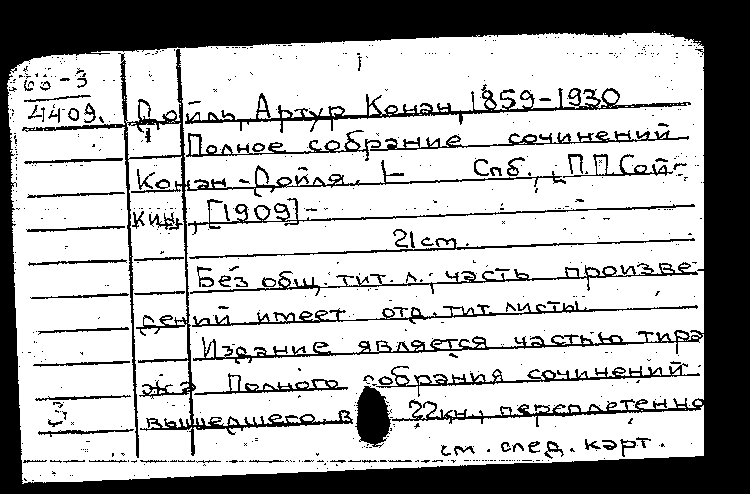 66-3
4409.
Дойль, Артур Конан, 1859-1930
Полное собрание сочинений
Конан-Дойля. 1-
Спб., П.П.Сой-
кин, [1909]-
21cm.
Без общ. тит. л.; часть произве-
дений имеет отд. тит. листы.
Издание является частью тира
жа Полного собрания сочинений
3
вышедшего в 22кн., переплетенно
см. след. карт.